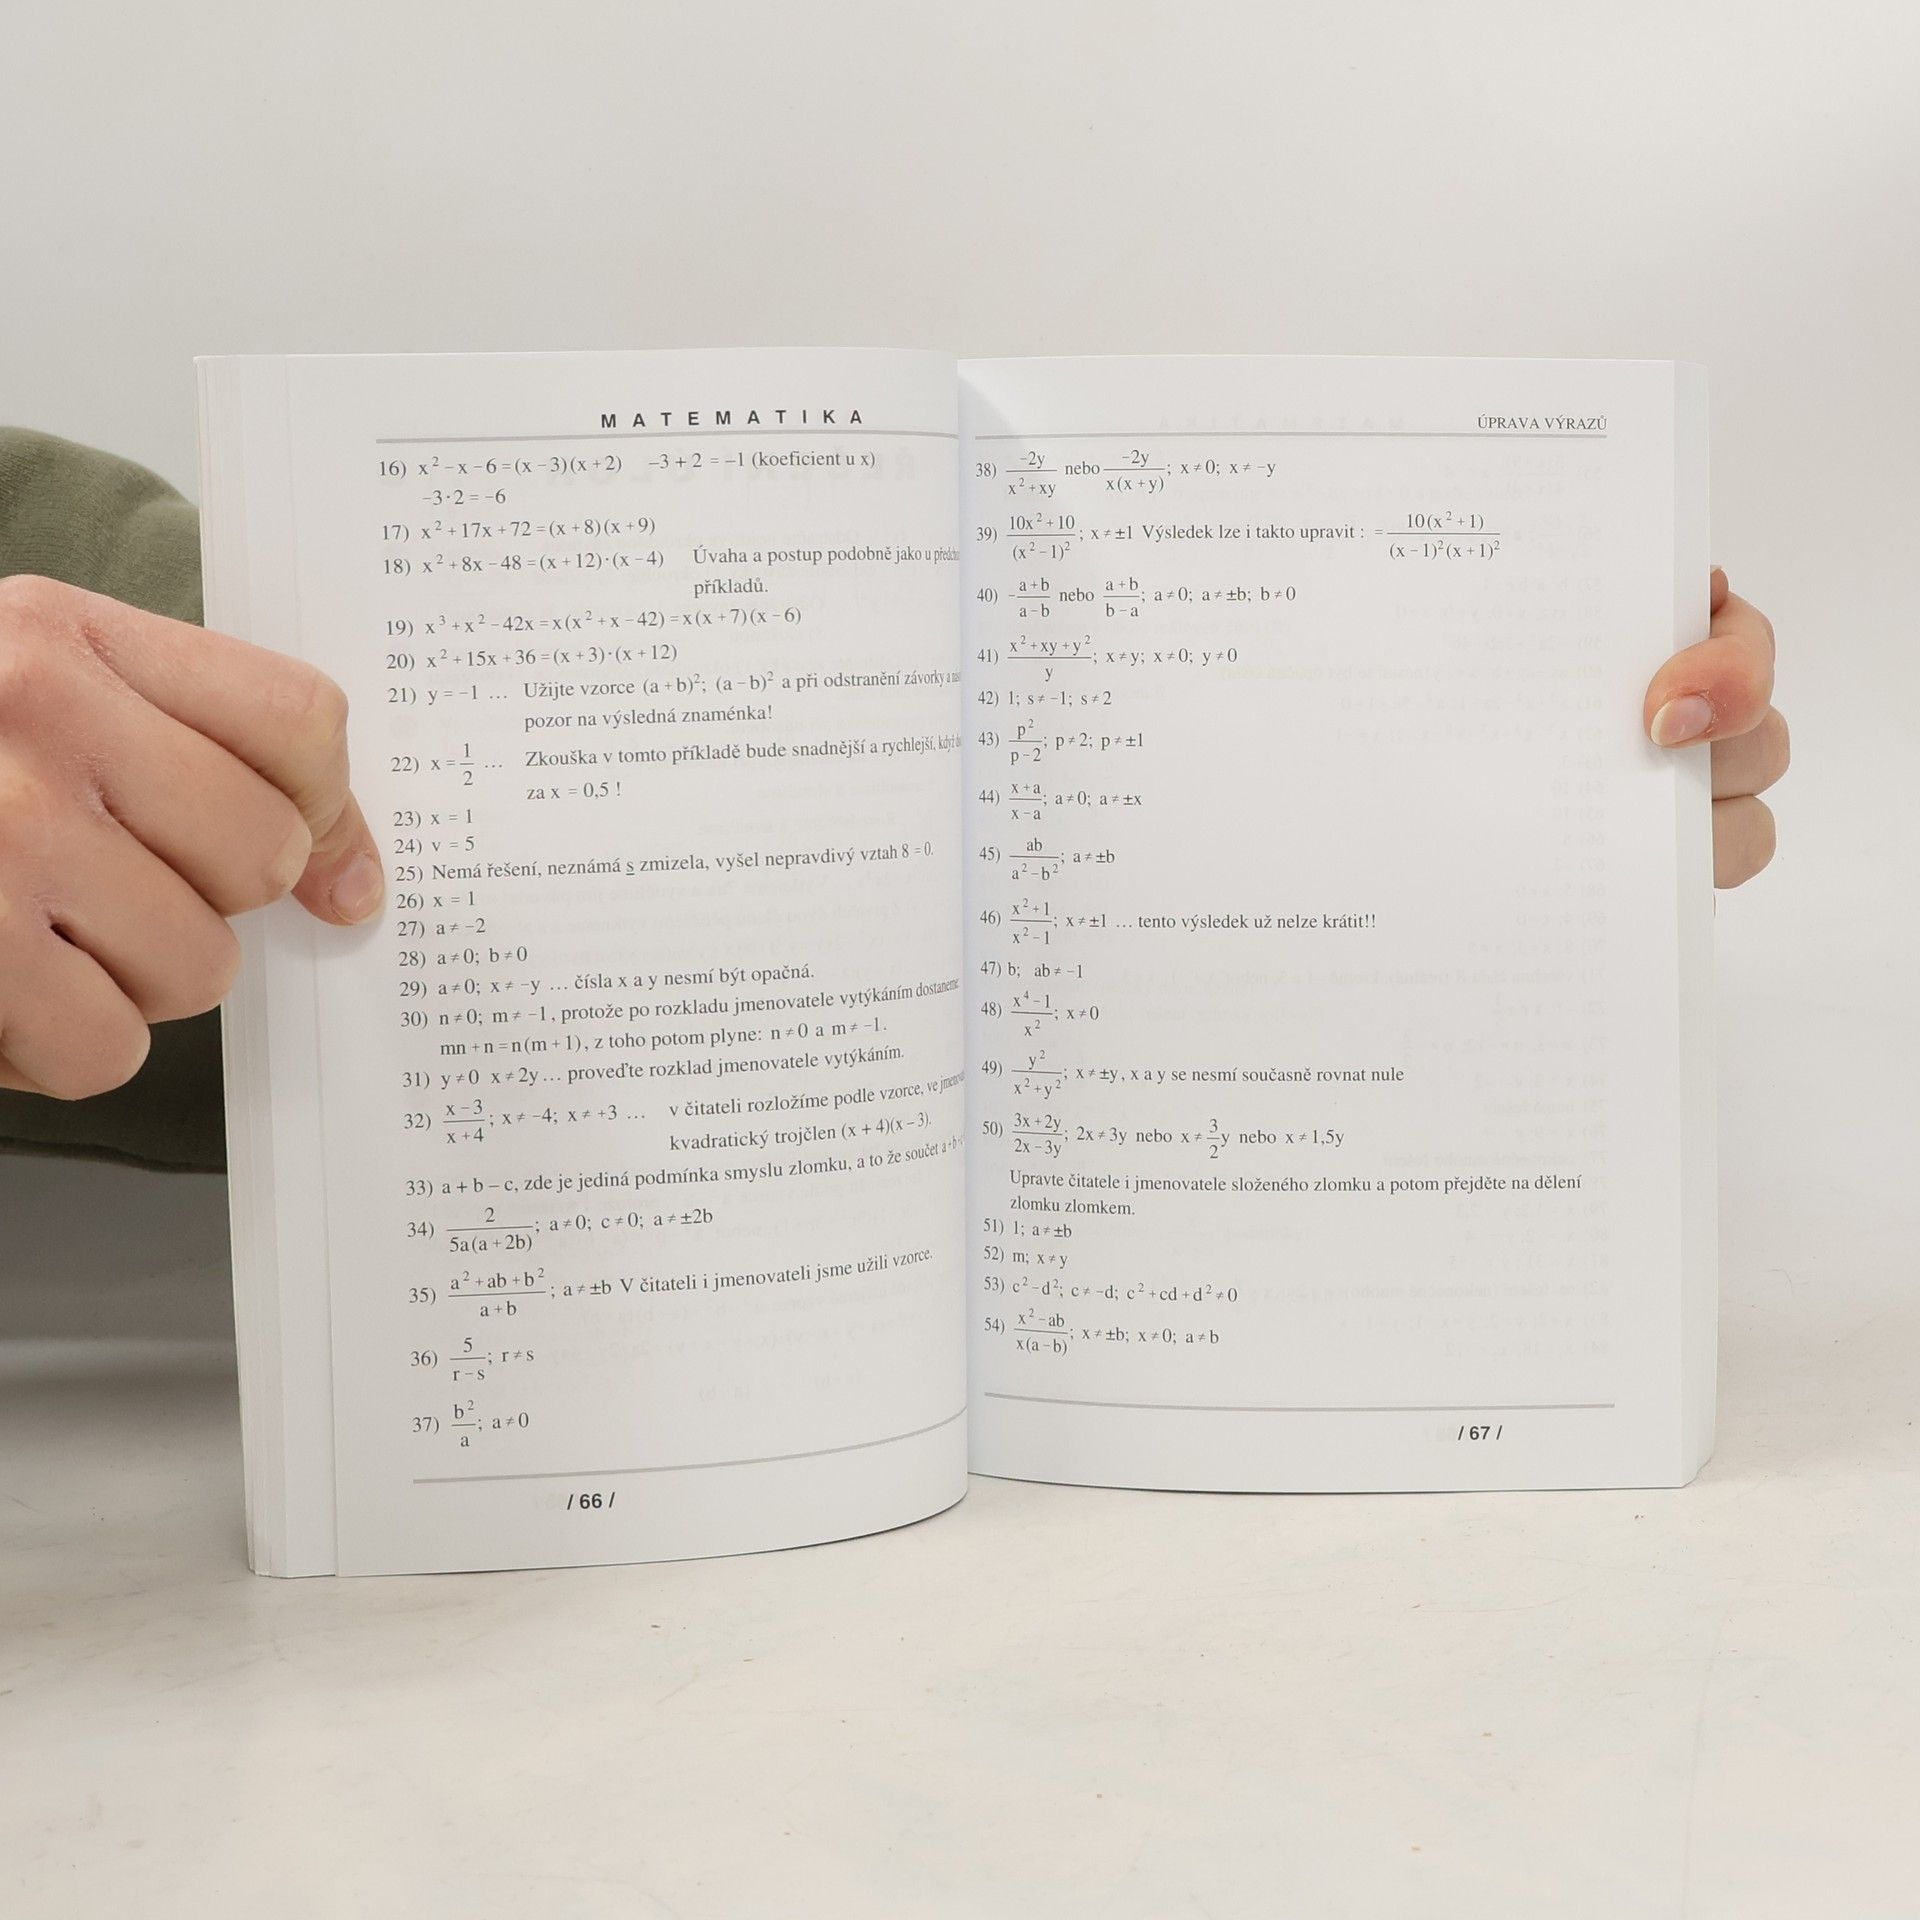 MATEMATIKA
16) x² – x – 6 = (x – 3)(x + 2) –3 + 2 = –1 (koeficient u x)
–3·2 = –6
17) x² + 17x + 72 = (x + 8)(x + 9)
18) x² + 8x – 48 = (x + 12)·(x – 4) Úvaha a postup podobně jako u
příkladů.
19) x³ + x² – 42x = x(x² + x – 42) = x(x + 7)(x – 6)
20) x² + 15x + 36 = (x + 3)·(x + 12)
21) y = –1 … Užijte vzorce (a + b)²; (a – b)² a při odstranění závorky a
pozor na výsledná znaménka!
22) x = 1/2 … Zkouška v tomto příkladě bude snadnější a rychlejší, když
za x = 0,5 !
23) x = 1
24) v = 5
25) Nemá řešení, neznámá s zmizela, vyšel nepravdivý vztah 8 = 0.
26) x = 1
27) a ≠ –2
28) a ≠ 0; b ≠ 0
29) a ≠ 0; x ≠ –y … čísla x a y nesmí být opačná.
30) n ≠ 0; m ≠ –1, protože po rozkladu jmenovatele vytýkáním dostaneme
mn + n = n(m + 1), z toho potom plyne: n ≠ 0 a m ≠ –1.
31) y ≠ 0 x ≠ 2y … proveďte rozklad jmenovatele vytýkáním.
32) (x – 3)/(x + 4); x ≠ –4; x ≠ +3 … v čitateli rozložíme podle vzorce, ve
kvadratický trojčlen (x + 4)(x – 3).
33) a + b – c, zde je jediná podmínka smyslu zlomku, a to že součet a + b
34) 2/(5a(a + 2b)); a ≠ 0; c ≠ 0; a ≠ ±2b
35) (a² + ab + b²)/(a + b); a ≠ ±b V čitateli i jmenovateli jsme užili vzorce.
36) 5/(r – s); r ≠ s
37) b²/a; a ≠ 0
/ 66 /
ÚPRAVA VÝRAZŮ
38) –2y/(x² + xy) nebo –2y/(x(x + y)); x ≠ 0; x ≠ –y
39) (10x² + 10)/(x² – 1)²; x ≠ ±1 Výsledek lze i takto upravit : = 10(x² + 1)/((x – 1)²(x + 1)²)
40) –(a + b)/(a – b) nebo (a + b)/(b – a); a ≠ 0; a ≠ ±b; b ≠ 0
41) (x² + xy + y²)/y; x ≠ y; x ≠ 0; y ≠ 0
42) 1; s ≠ –1; s ≠ 2
43) p²/(p – 2); p ≠ 2; p ≠ ±1
44) (x + a)/(x – a); a ≠ 0; a ≠ ±x
45) ab/(a² – b²); a ≠ ±b
46) (x² + 1)/(x² – 1); x ≠ ±1 … tento výsledek už nelze krátit!!
47) b; ab ≠ –1
48) (x⁴ – 1)/x²; x ≠ 0
49) y²/(x² + y²); x ≠ ±y, x a y se nesmí současně rovnat nule
50) (3x + 2y)/(2x – 3y); 2x ≠ 3y nebo x ≠ 3/2 y nebo x ≠ 1,5y
Upravte čitatele i jmenovatele složeného zlomku a potom přejděte na dělení
zlomku zlomkem.
51) 1; a ≠ ±b
52) m; x ≠ y
53) c² – d²; c ≠ –d; c² + cd + d² ≠ 0
54) (x² – ab)/(x(a – b)); x ≠ ±b; x ≠ 0; a ≠ b
/ 67 /